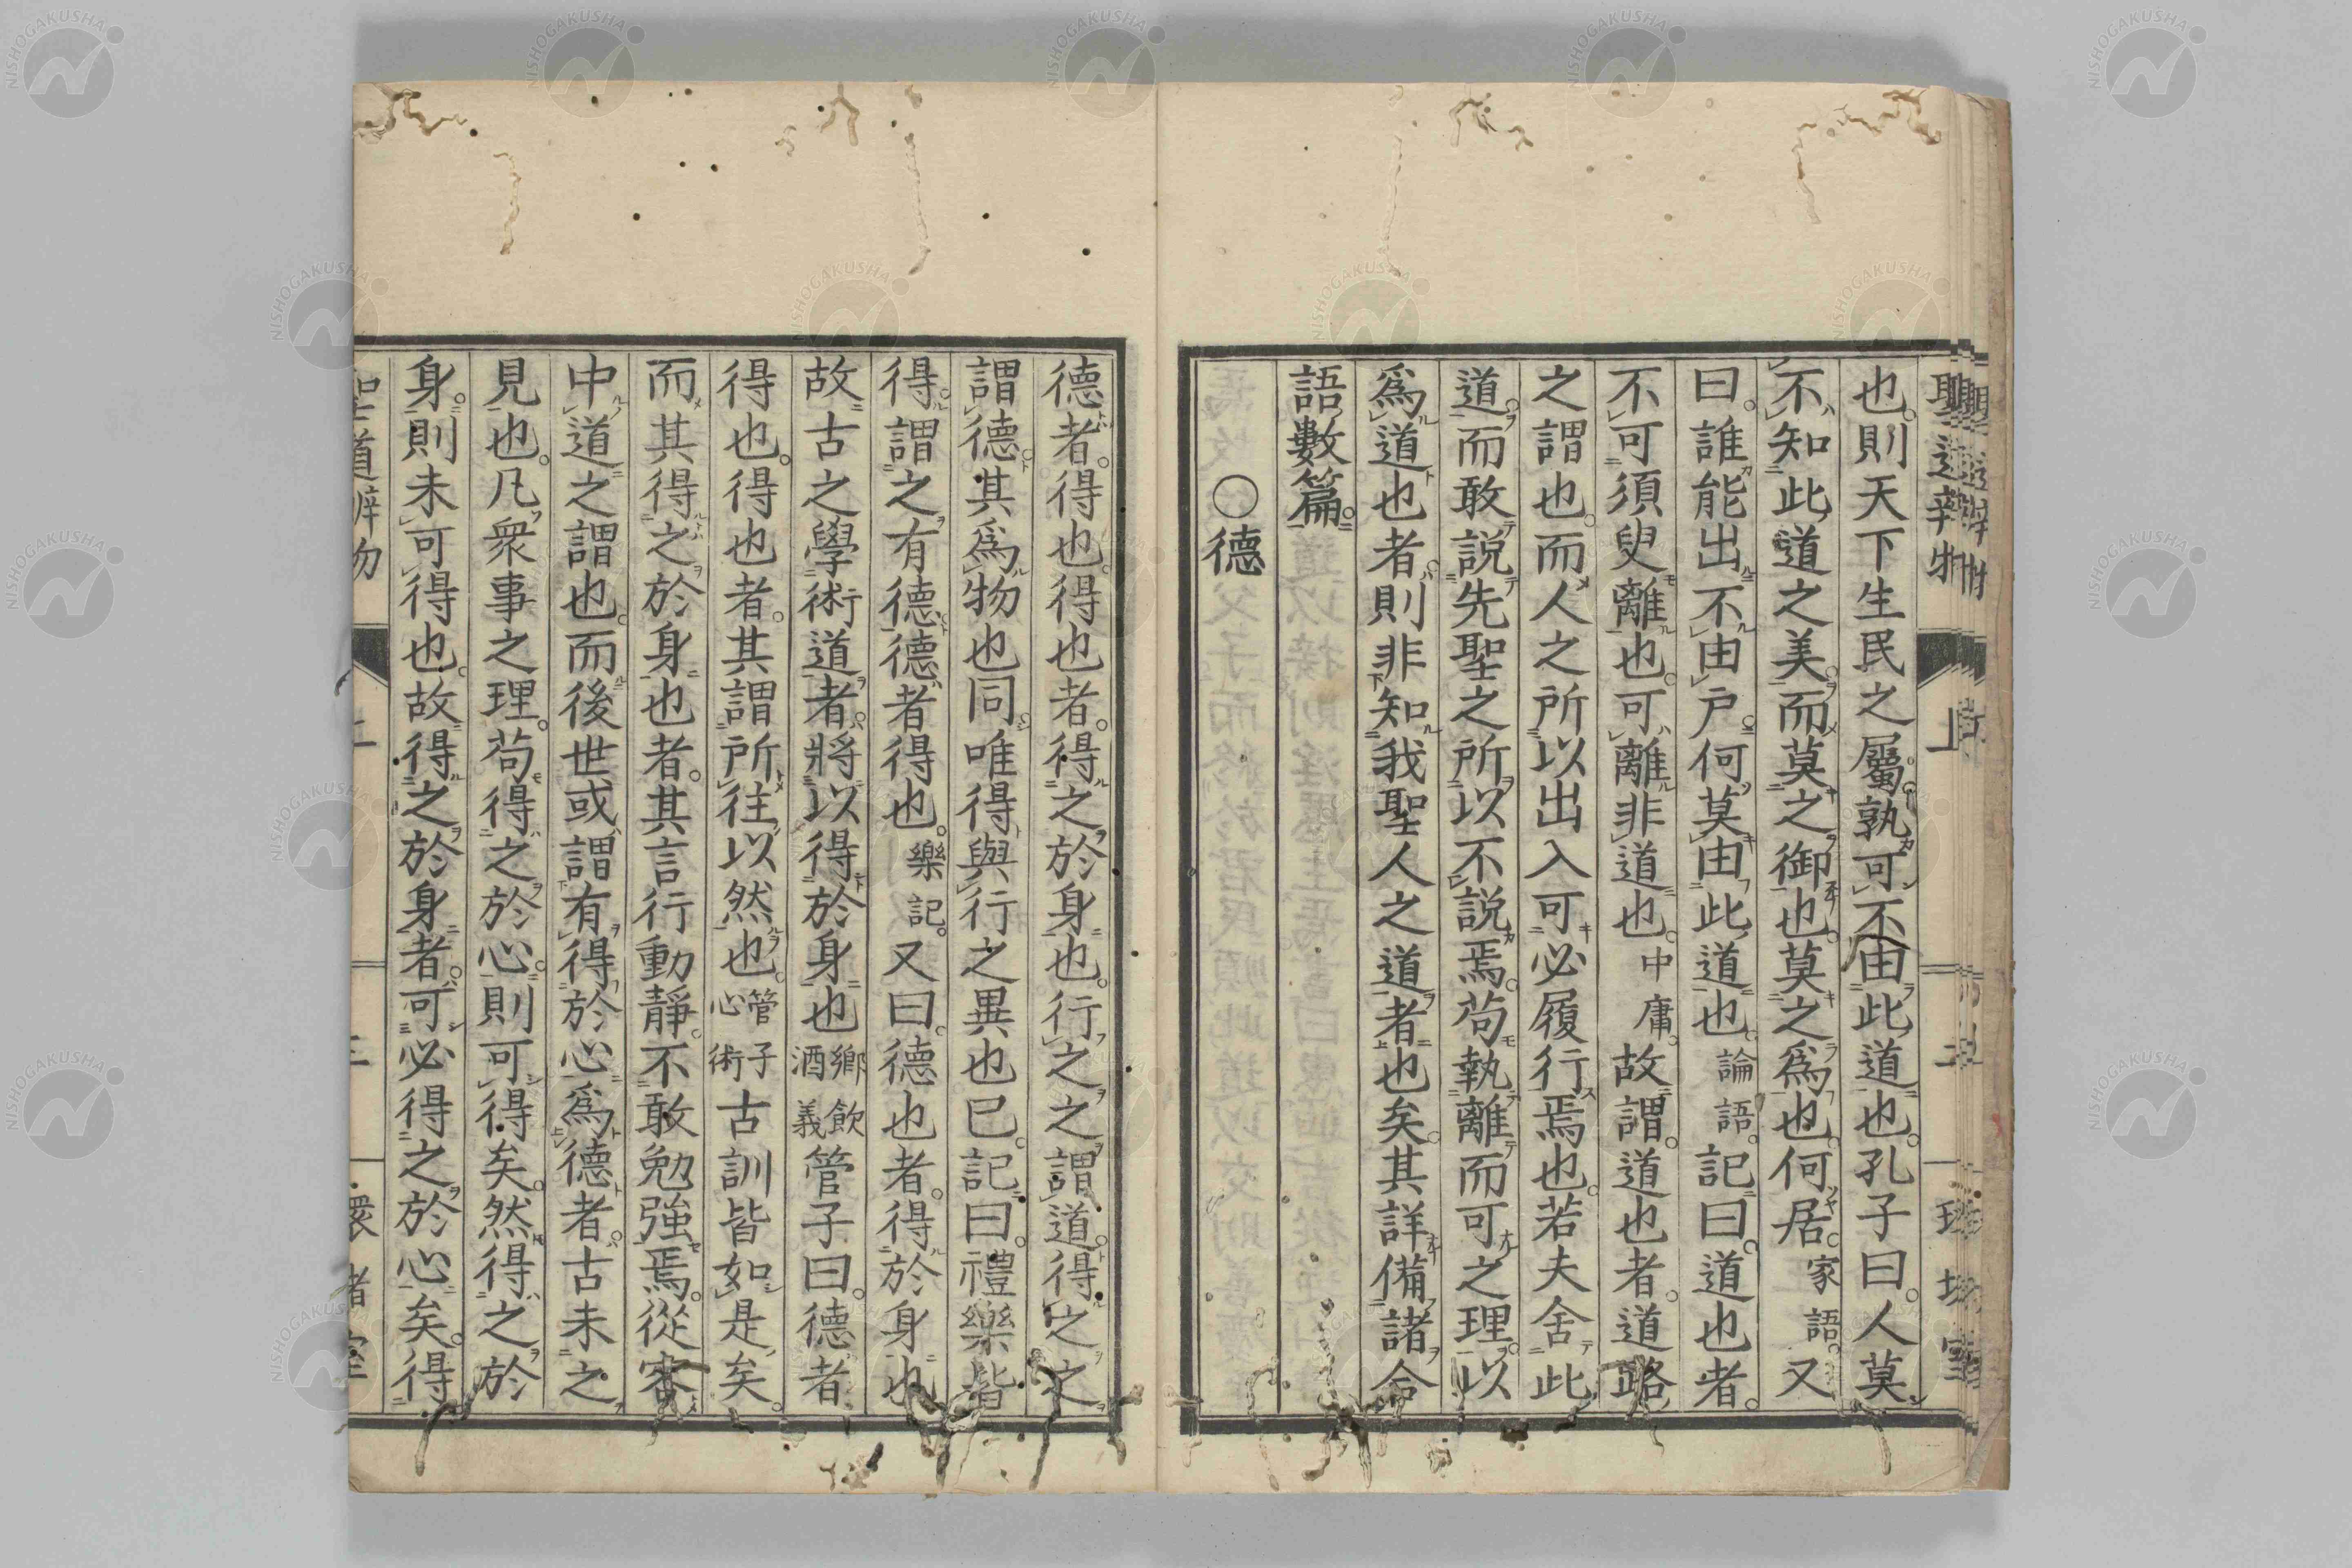 也。則天下生民之屬。孰可不由此道也。孔子曰。人莫
不知此道之美。而莫之御也。莫之爲也。何居。家語。又
曰。誰能出不由戸。何莫由此道也。論語。記曰。道也者。
不可須臾離也。可離非道也。中庸。故謂。道也者。道路
之謂也。而人之所以出入可必履行焉也。若夫舍此
道。而敢説先聖之所以不説焉。苟執離而可之理。以
爲道也者。則非知我聖人之道者也矣。其詳備諸命
語數篇。
〇德
德者。得也。得也者。得之於身也。行之之謂道。得之之
謂德。其爲物也同。唯得與行之異也已。記曰。禮樂皆
得。謂之有德。德者得也。樂記。又曰。德也者。得於身也
故古之學術道者。將以得於身也鄉飲酒義管子曰。德者
得也。得也者。其謂所往以然也。管子心術古訓皆如是矣。
而其得之於身也者。其言行動靜。不敢勉強焉。從容
中道之謂也。而後世或謂有得於心爲德者。古未之
見也。凡衆事之理。苟得之於心。則可得矣。然得之於
身。則未可得也。故得之於身者。可必得之於心矣。得
聖道辨物
上
NISHOGAKUSHA